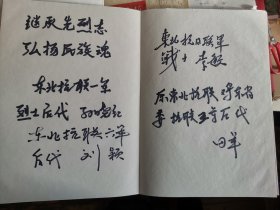 继承先烈志
弘扬民族魂
东北抗联一军
烈士后代
东北抗联六军
后代 刘颖
东北抗日联军
战士 李敏
原东北抗联
李 抗联五军后代